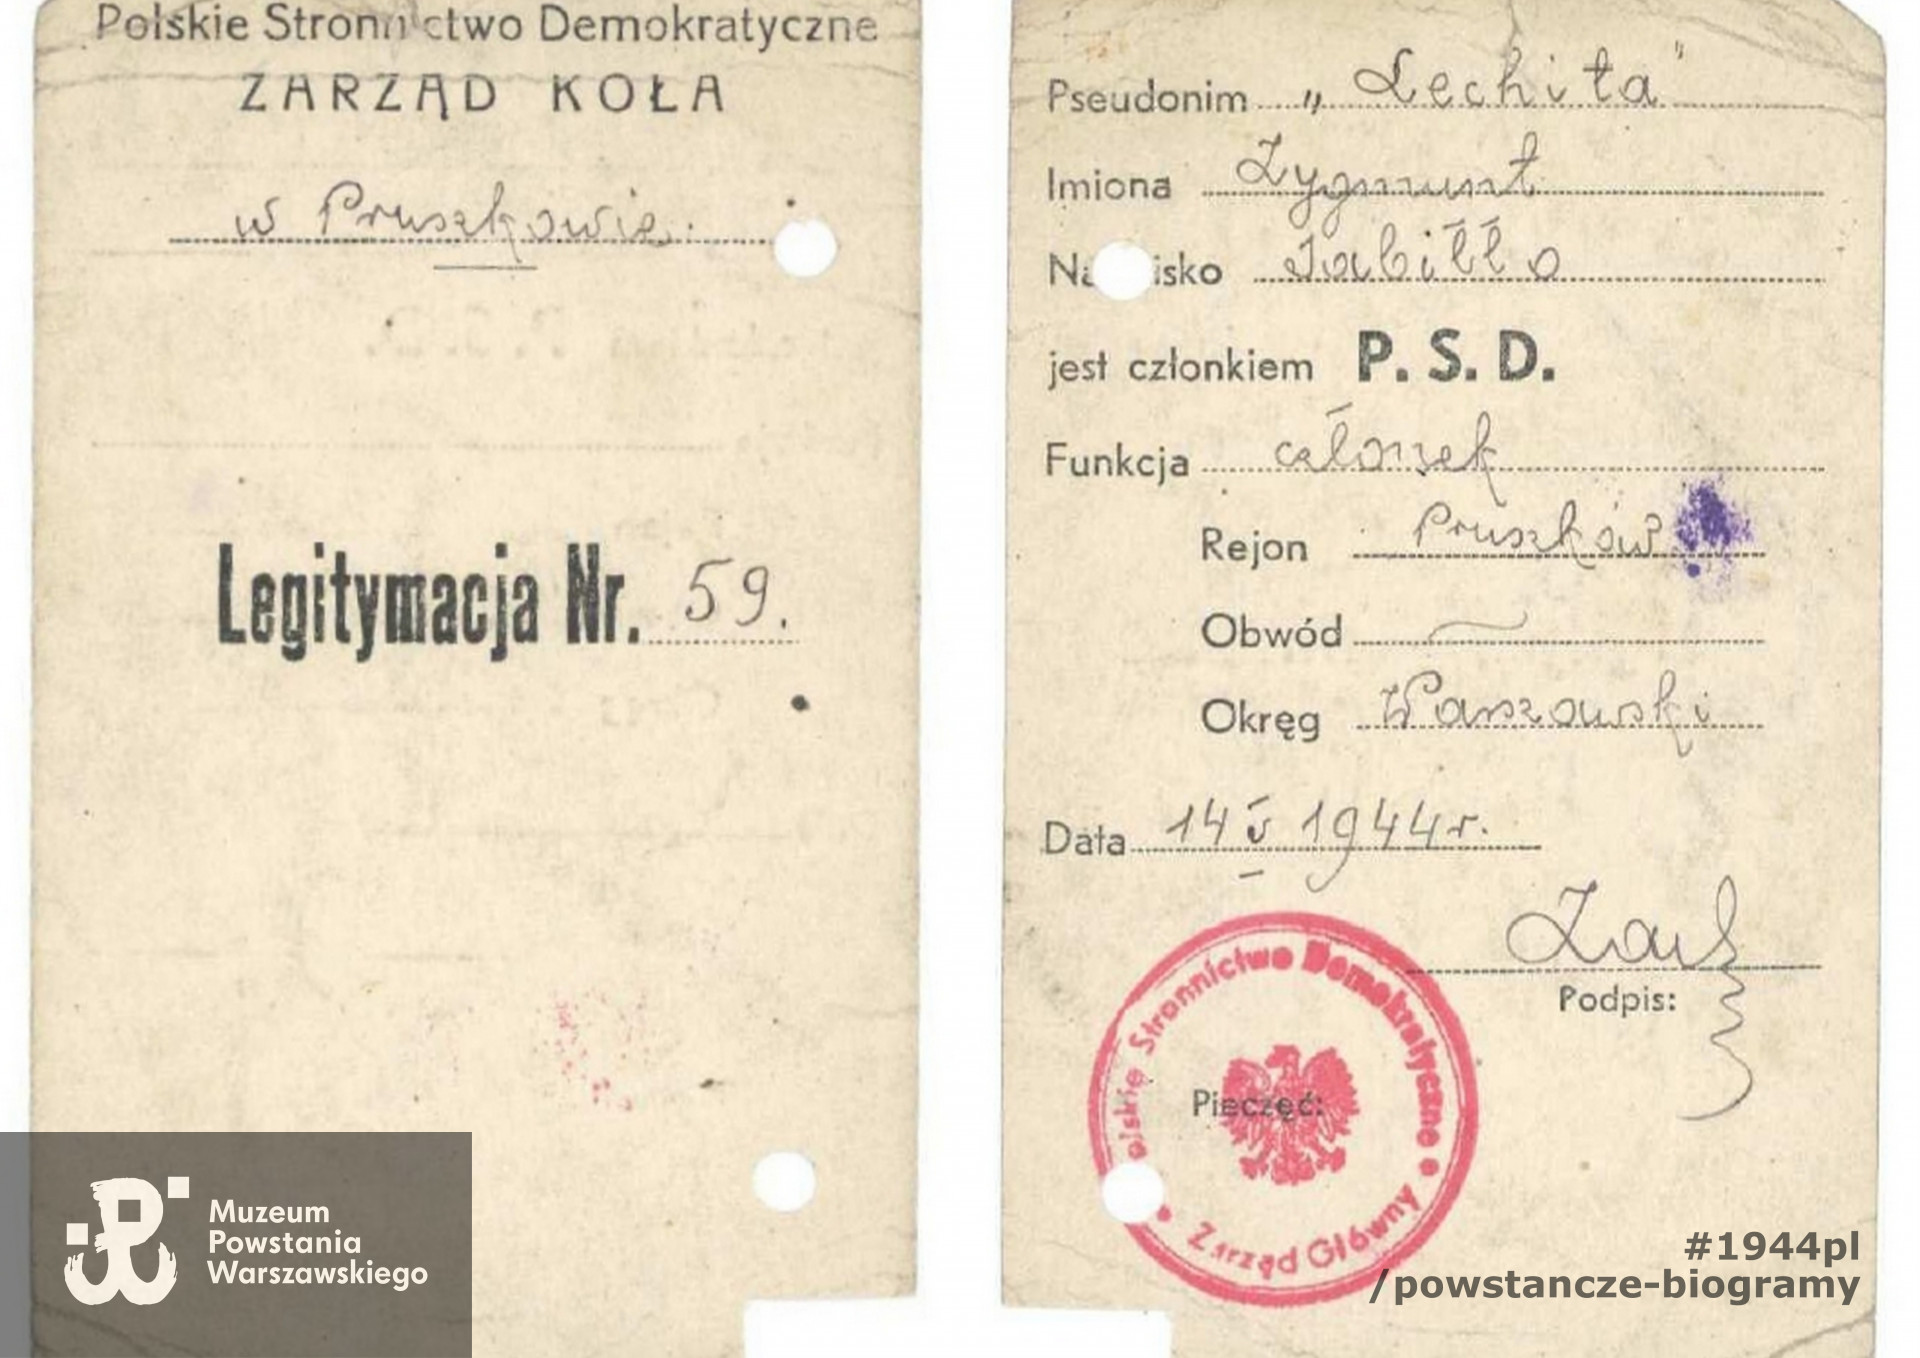 Polskie Stronnictwo Demokratyczne
ZARZĄD KOŁA
w Pruszkowie.
Legitymacja Nr. 59.
Pseudonim „Lechita"
Imiona Zygmunt
Nazwisko Jabiłło
jest członkiem P. S. D.
Funkcja członek
Rejon Pruszków
Obwód
Okręg Warszawski
Data 14 V 1944 r.
Podpis:
Pieczęć:
Polskie Stronnictwo Demokratyczne
Zarząd Główny
Muzeum
Powstania
Warszawskiego
#1944pl
/powstancze-biogramy